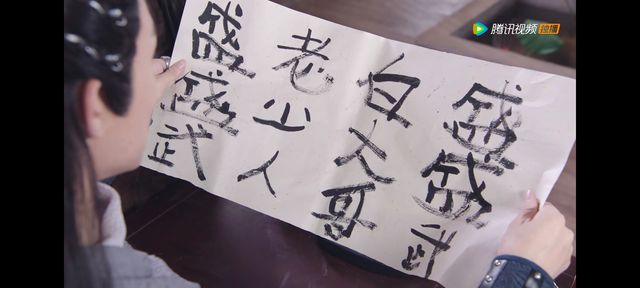 腾讯视频 独播
盛盛武
白大哥
老少人
盛盛武